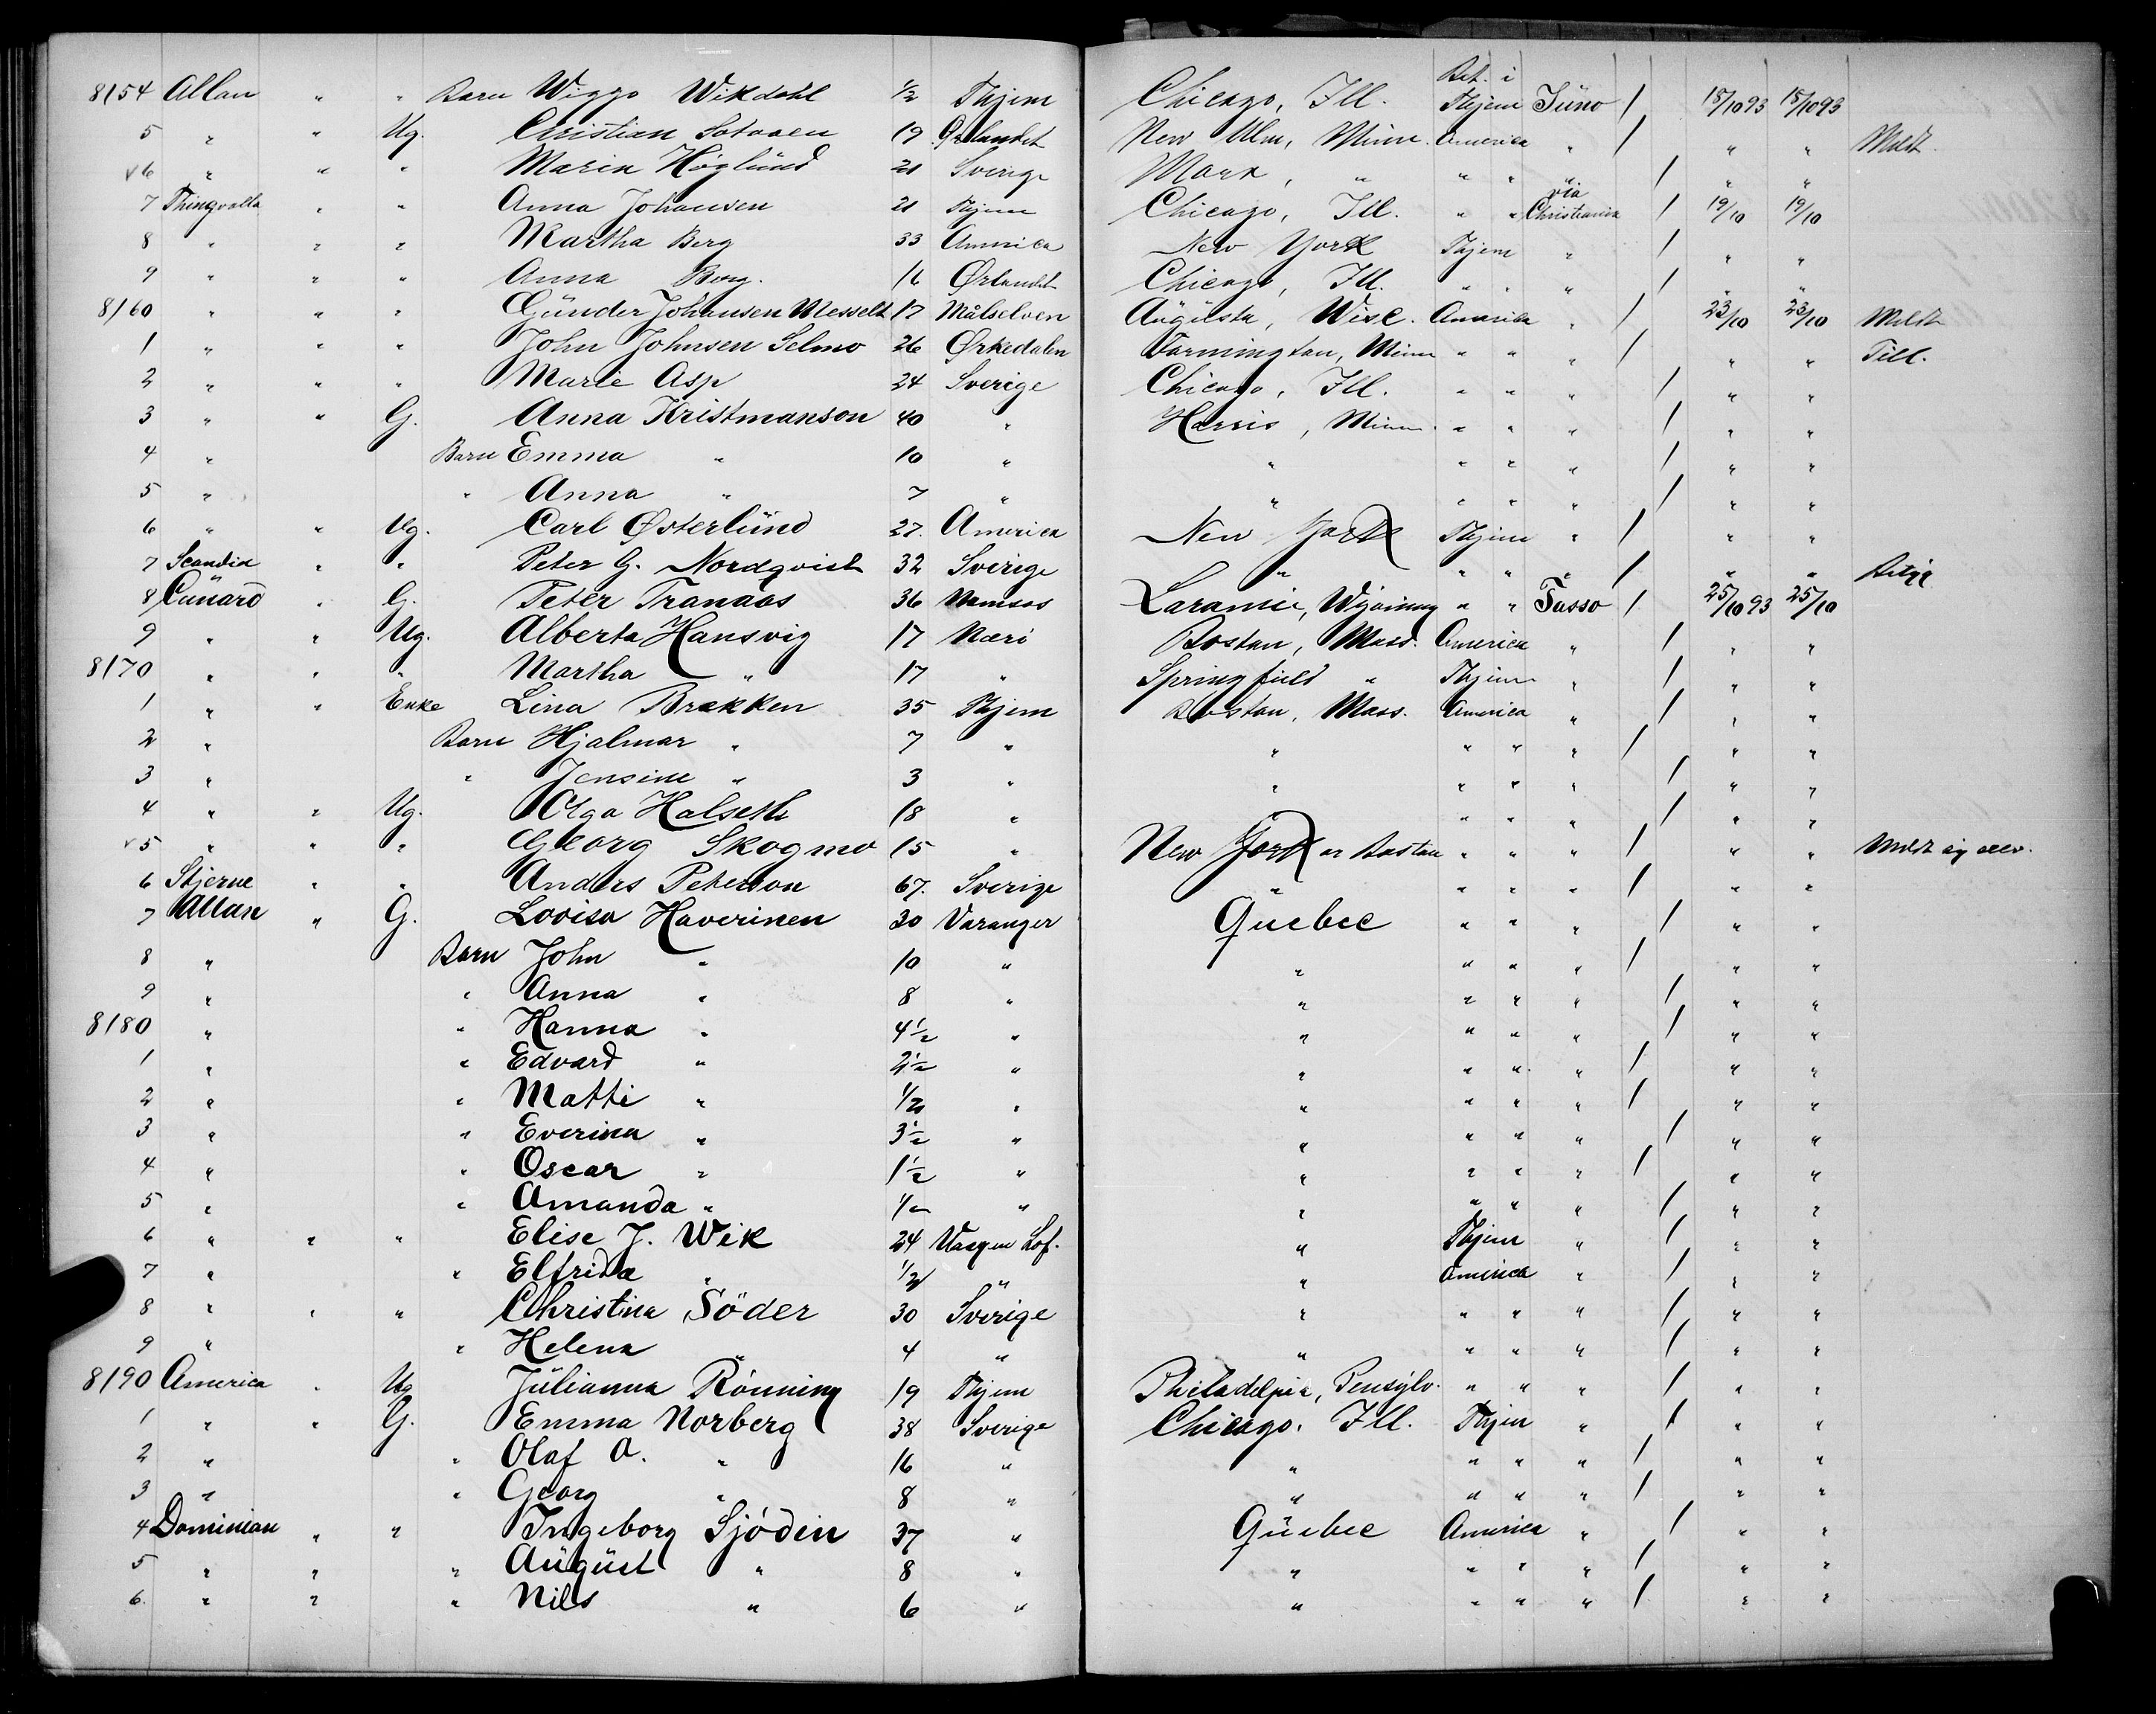 Bet. i
8154 Allan " " Barn Wiggo Wikdahl 1/2 Thjem Chicago, Ill. Thjem Juno / 18/10 93 18/10 93
5 " " Ug. Christian 19 Ørlandet New Ulm, Minn. America " / " " Meldt
v6 " " " Marin Höglund 21 Sverige " " " " / " "
7 Thingvalla " " Anna Johansen 21 Thjem Chicago, Ill. " " via Christiania / 19/10 19/10
8 " " " Martha Berg 33 America New York Thjem " / " "
9 " " " Anna Berg. 16 Ørlandet Chicago, Ill. " " " / " "
8160 " " " Gunder Johansen Messelt 17 Målselven Augusta, Wisc. America " / 23/10 23/10 Meldt
1 " " " John Johnsen Selmo 26 Ørkedalen Farmington, Minn " " " / " " Till.
2 " " " Marie Asp 24 Sverige Chicago, Ill. " " " / " "
3 " " G. Anna Kristmanson 40 " Harris, Minn. " " " / " "
4 " Barn Emma " 10 " " " " " / " "
5 " " Anna " 7 " " " " " / " "
6 " " Ug. Carl Østerlund 27. America New York Thjem " / " "
7 Scandia " " Peter G. Nordqvist 32 Sverige " " " " / " "
8 Cunard " G. Peter Tranaas 36 Namsos Laramie, Wyoming " " Tasso / 25/10 93 25/10
9 " " Ug. Alberta Hansvig 17 Nærö Boston, Mass. America " / " "
8170 " " " Martha " 17 " Springfield " Thjem " / " "
1 " " Enke Lina Brækken 35 Thjem Boston, Mass. America " / " "
2 " Barn Hjalmar " 7 " " " " " / " "
3 " " Jensine " 3 " " " " " / " "
4 " " Ug. Olga Halseth 18 " " " " / " "
v5 " " " Georg Skogmo 15 " New York or Boston " " " / " " Meldt
6 Stjerne " " Anders Peterson 67. Sverige " " " " / " "
7 Allan " G. Lovisa Haverinen 30 Varanger Quebec " " " / " "
8 " Barn John " 10 " " " " " / " "
9 " " Anna " 8 " " " " " / " "
8180 " " Hanna " 4 1/2 " " " " " / " "
1 " " Edvard " 2 1/2 " " " " " / " "
2 " " Matti " 1/2 " " " " " / " "
3 " " Everina " 3 1/2 " " " " " / " "
4 " " Oscar " 1 1/2 " " " " " / " "
5 " " Amanda " 1/2 " " " " " / " "
6 " " " Elise J. Wik 24 Lof. " Thjem " / " "
7 " " Elfrida " 1/2 " " America " / " "
8 " " " Christina Söder 30 Sverige " " " " / " "
9 " " Helena " 4 " " " " " / " "
8190 America " Ug Julianna Rönning 19 Thjem Philadelpia, Pensylv. " " " / " "
1 " " G. Emma Norberg 38 Sverige Chicago, Ill. Thjem " / " "
2 " " Olaf O. " 16 " " " " " / " "
3 " " Georg " 8 " " " " " / " "
4 Dominion " " Ingeborg Sjödin 37 " Quebec America " / " "
5 " " " August " 8 " " " " " / " "
6. " " " Nils " 6 " " " " " / " "